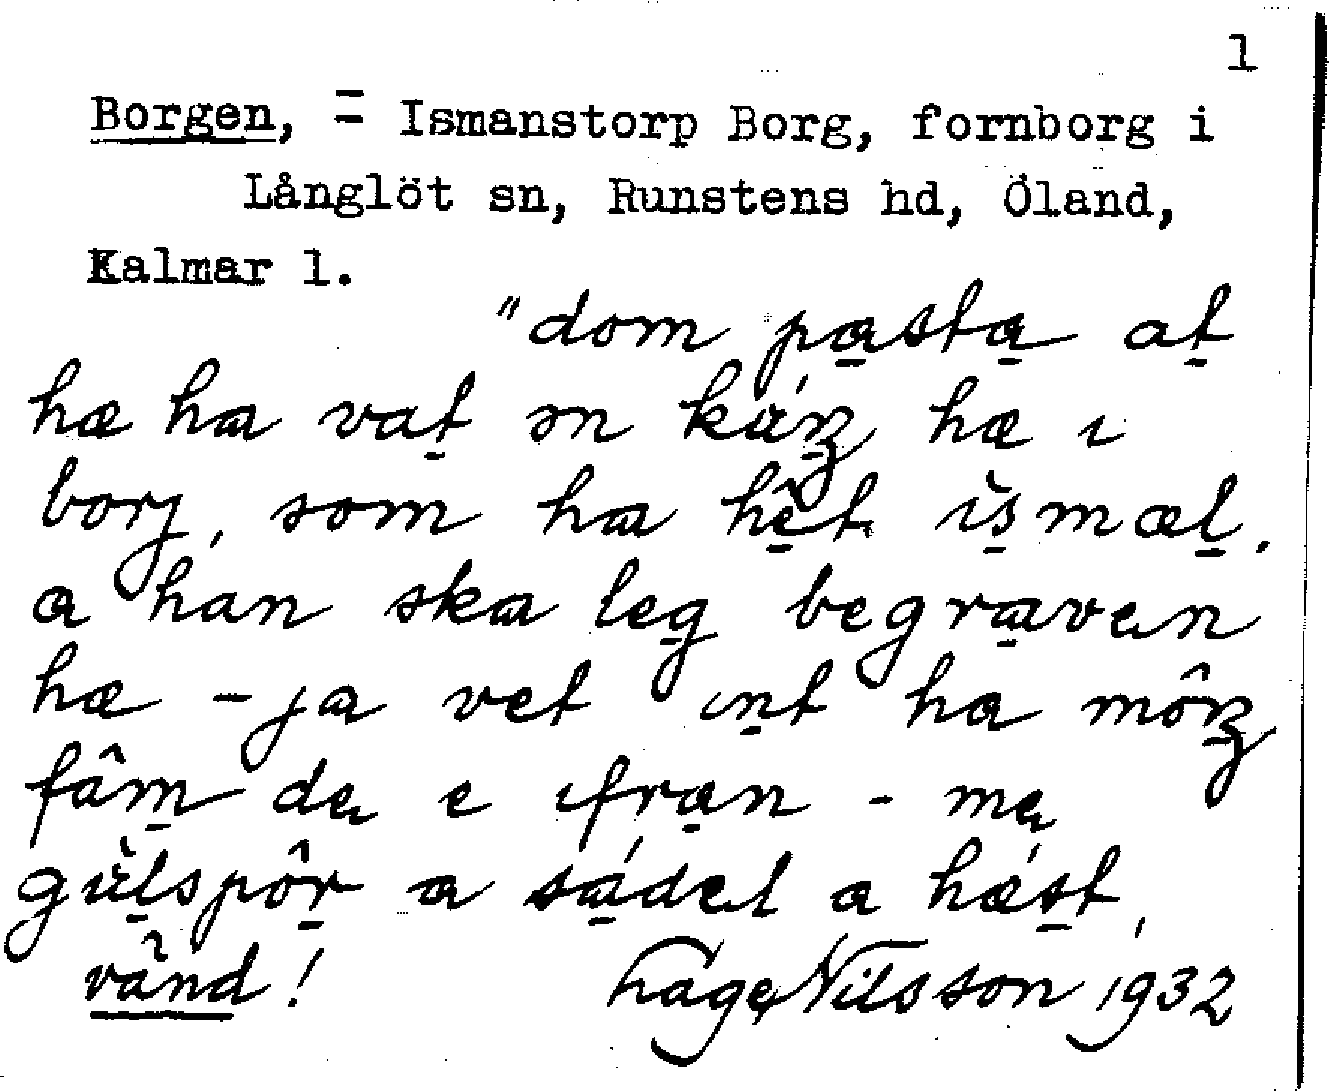 1
Borgen, = Ismanstorp Borg, fornborg i
Långlöt sn, Runstens hd, Öland,
Kalmar l.
"dom pasta at
hæ ha vat ən kúŋ hæ ı
borj, som ha hêt ìsmæl,
a han ska leg begraven
hæ - ja vet ınt ha môŋ
fâm de e ıfran - me
gùlspôr a sádel a hǽst,
vänd! Tage Nilsson 1932